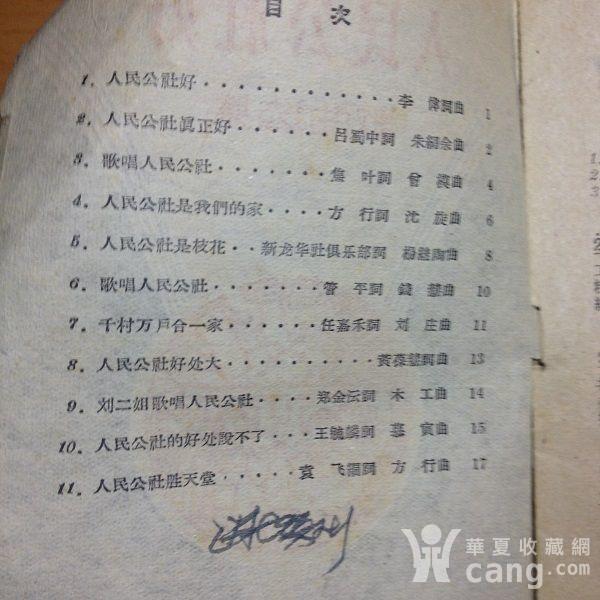 目 次
1. 人民公社好 · · · · · · · · · · · · 李 偉詞曲 1
2. 人民公社眞正好 · · · · · 呂蜀中詞 朱 余曲 2
3. 歌唱人民公社 · · · · · · · 叶詞 曾 曲 4
4. 人民公社是我們的家 · · · · 方 行詞 沈 旋曲 6
5. 人民公社是枝花 · · 新龙华社俱乐部詞 曲 8
6. 歌唱人民公社 · · · · · · · 管 平詞 錢 慧曲 10
7. 千村万戶合一家 · · · · · · 任嘉禾詞 刘 庄曲 11
8. 人民公社好处大 · · · · · · · · · · 黃 詞曲 13
9. 刘二姐歌唱人民公社 · · · 郑金沄詞 木 工曲 14
10. 人民公社的好处說不了 · · · 王 詞 寅曲 15
11. 人民公社胜天堂 · · · · · · 袁 飞 詞 方 行曲 17
1.
2
3
華夏收藏網
cang.com